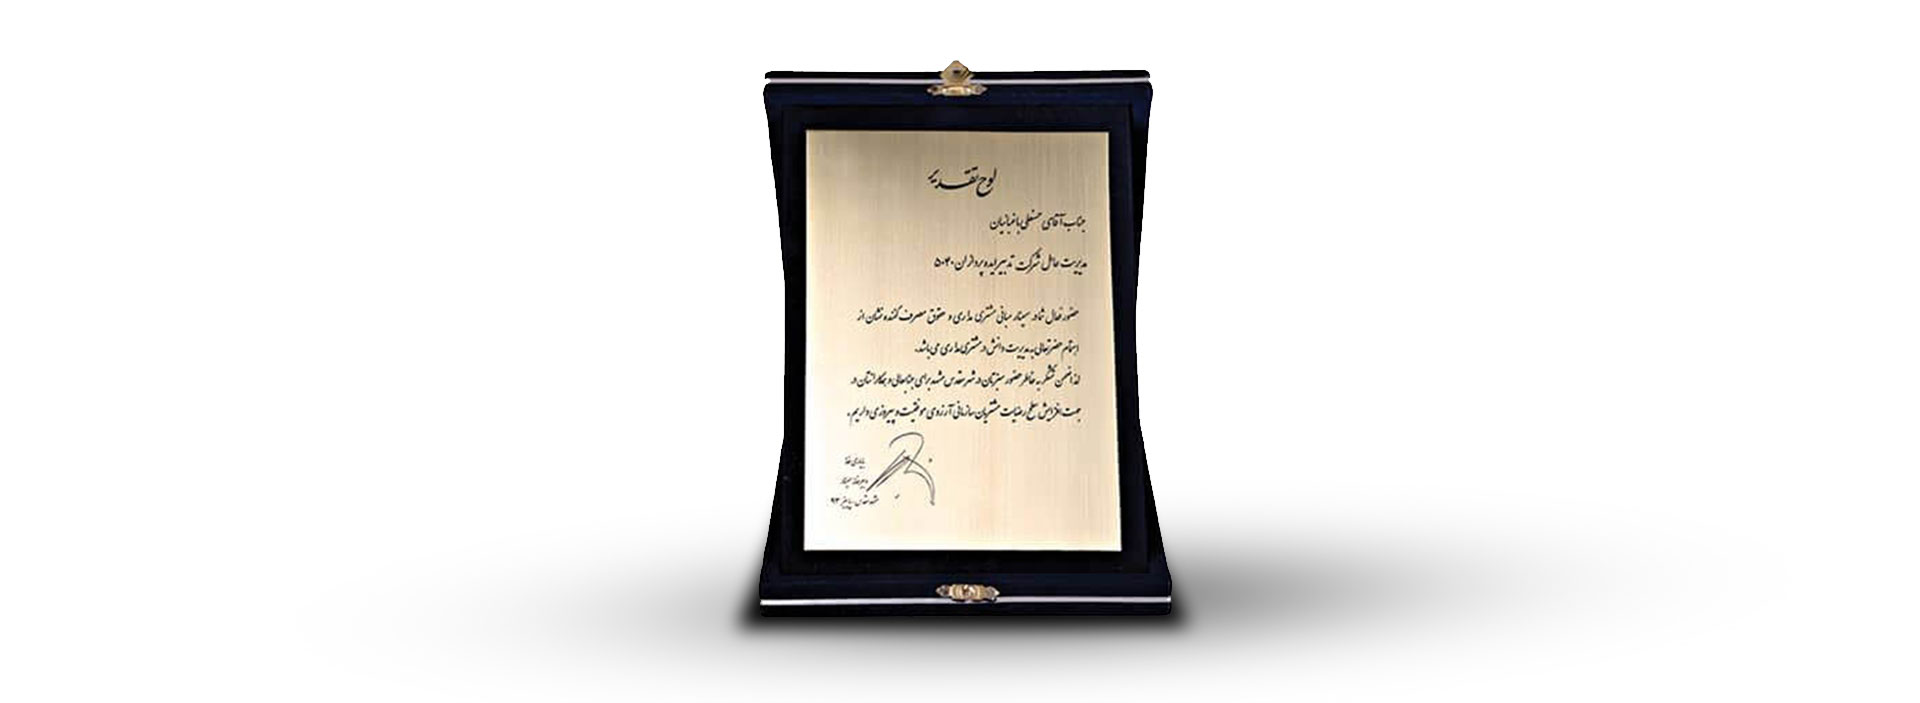 لوح تقدیر
جناب آقای حسنعلی باغبانیان
مدیریت عامل شرکت تدبیر ایده پردازان ۵۰۴۰
حضور فعال شما در سمینار مبانی مشتری مداری و حقوق مصرف کننده نشان از
اهتمام حضرتعالی به مدیریت دانش در مشتری مداری می باشد.
لذا ضمن تشکر به خاطر حضور سبزتان در شهر مقدس مشهد برای جنابعالی و همکارانتان در
جهت افزایش سطح رضایت مشتریان سازمانی آرزوی موفقیت و پیروزی داریم.
دبیر سمینار
مشهد مقدس - پاییز ۹۳